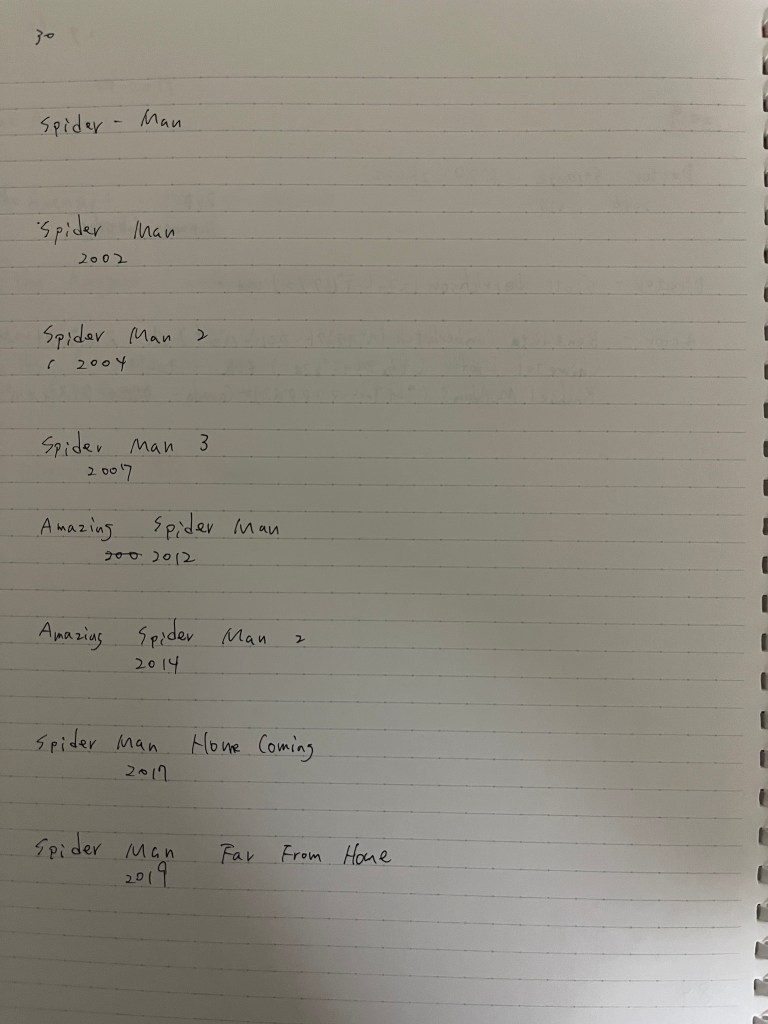 30
Spider - Man
Spider Man
2002
Spider Man 2
2004
Spider Man 3
2007
Amazing Spider Man
200 2012
Amazing Spider Man 2
2014
Spider Man Home Coming
2017
Spider Man Far From Home
2019